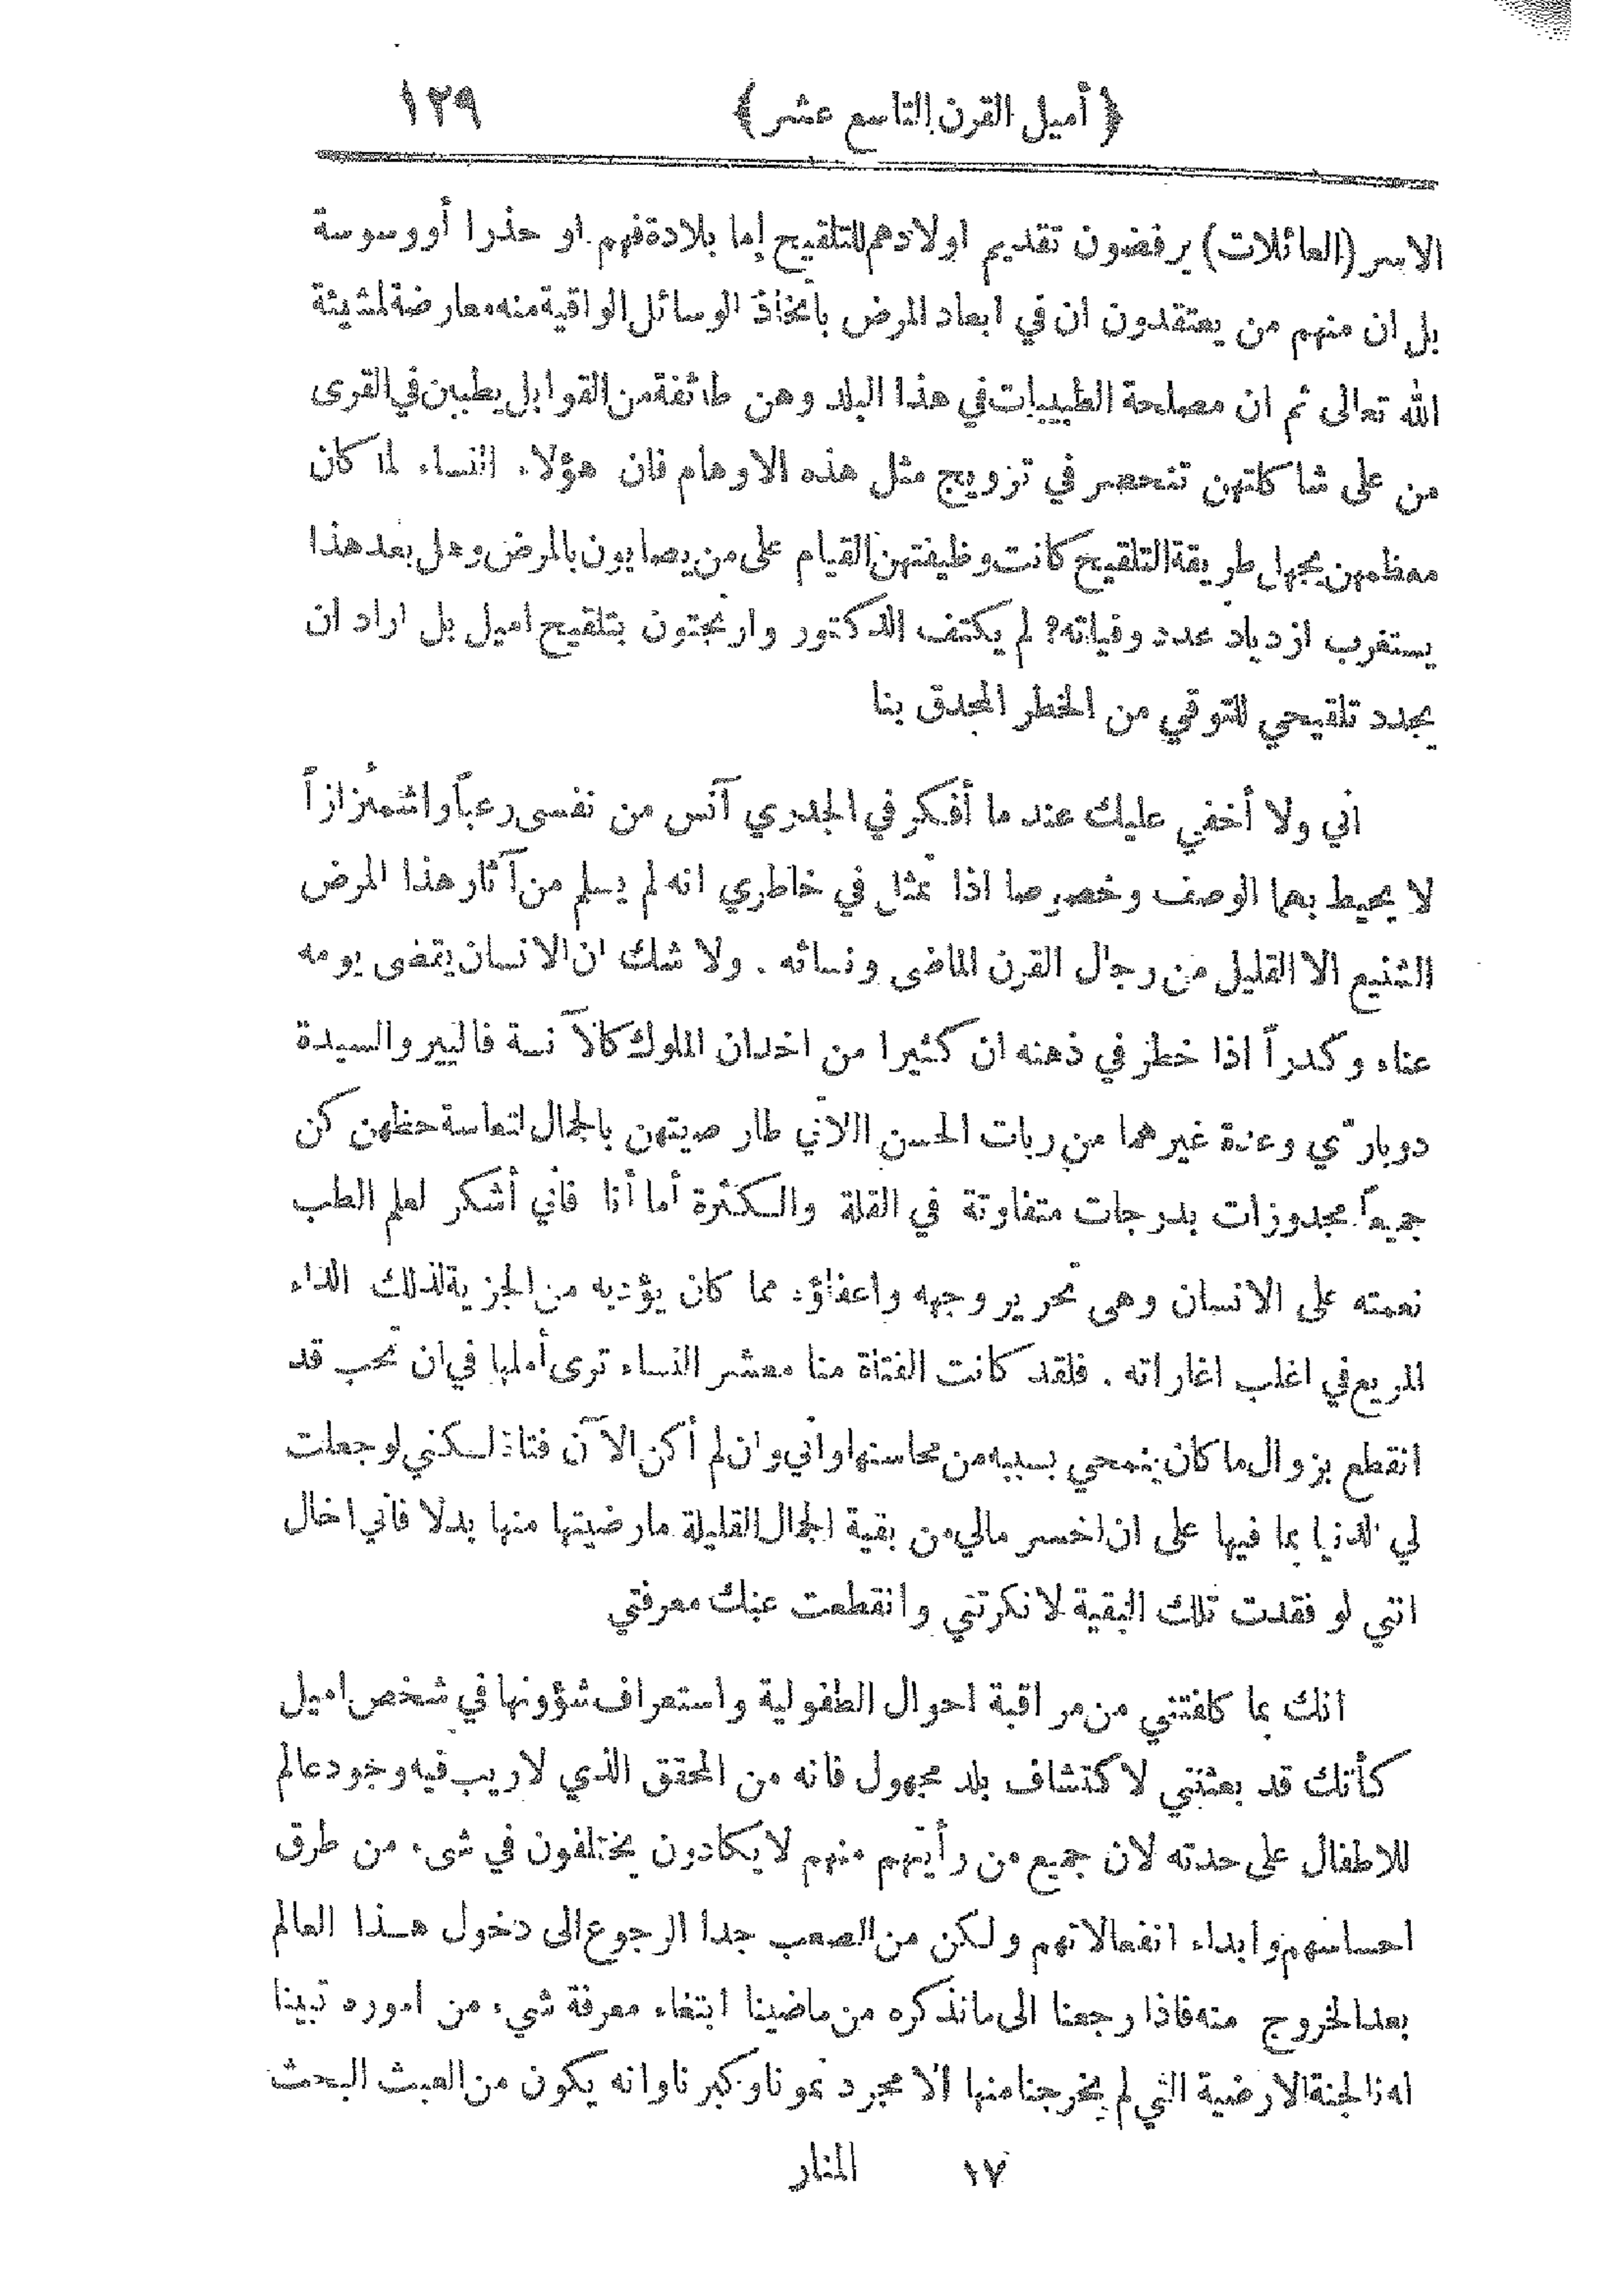 ﴿ أميل القرن التاسع عشر ﴾ ١٢٩
الاسر (العائلات) يرفضون تقديم اولادهم للتلقيح إما بلادة فهم او حذرا أو وسوسة
بل ان منهم من يعتقدون ان في ابعاد المرض باتخاذ الوسائل الواقية منه معارضة لمشيئة
الله تعالى ثم ان مصلحة الطبيبات في هذا البلد وهن طائفة من القوابل يطببن في القرى
من على شاكلتهن تنحصر في ترويج مثل هذه الاوهام فان هؤلاء النساء لما كان
معظمهن يجهل طريقة التلقيح كانت وظيفتهن القيام على من يصابون بالمرض وهل بعد هذا
يستغرب ازدياد عدد وفياته؟ لم يكتف الدكتور وارنجتون بتلقيح اميل بل اراد ان
يجدد تلقيحي للتوقي من الخطر المحدق بنا
اني ولا أخفي عليك عند ما أفكر في الجدري آنس من نفسى رعباً واشمئزازاً
لا يحيط بهما الوصف وخصوصا اذا تمثل في خاطري انه لم يسلم من آثار هذا المرض
الشنيع الا القليل من رجال القرن الماضى ونسائه . ولا شك ان الانسان يقضى يومه
عناء وكدراً اذا خطر في ذهنه ان كثيرا من اخدان الملوك كالآنسة فاليير والسيدة
دوباري وعدة غيرهما من ربات الحسن اللاتي طار صيتهن بالجمال لتعاسة حظهن كن
جميعاً مجدورات بدرجات متفاوتة في القلة والكثرة أما أنا فاني أشكر لعلم الطب
نعمته على الانسان وهى تحرير وجهه واعفاؤه مما كان يؤديه من الجزية لذلك الداء
المريع في اغلب اغاراته . فلقد كانت الفتاة منا معشر النساء ترى أملها في ان تحب قد
انقطع بزوال ما كان ينمحي بسببه من محاسنها واني وان لم أكن الآن فتاة لكني لو جعلت
لي الدنيا بما فيها على ان اخسر مالي من بقية الجمال القليلة ما رضيتها منها بدلا فاني اخال
انني لو فقدت تلك البقية لانكرتني وانقطعت عنك معرفتي
انك بما كلفتني من مراقبة احوال الطفولية واستعراف شؤونها في شخص اميل
كأنك قد بعثتني لاكتشاف بلد مجهول فانه من المحقق الذي لا ريب فيه وجود عالم
للاطفال على حدته لان جميع من رأيتهم منهم لا يكادون يختلفون في شىء من طرق
احساسهم وابداء انفعالاتهم ولكن من الصعب جدا الرجوع الى دخول هذا العالم
بعد الخروج منه فاذا رجعنا الى ما نذكره من ماضينا ابتغاء معرفة شيء من اموره تبينا
انه الجنة الارضية التي لم يخرجنا منها الا مجرد نمونا وكبرنا وانه يكون من العبث البحث
١٧ المنار